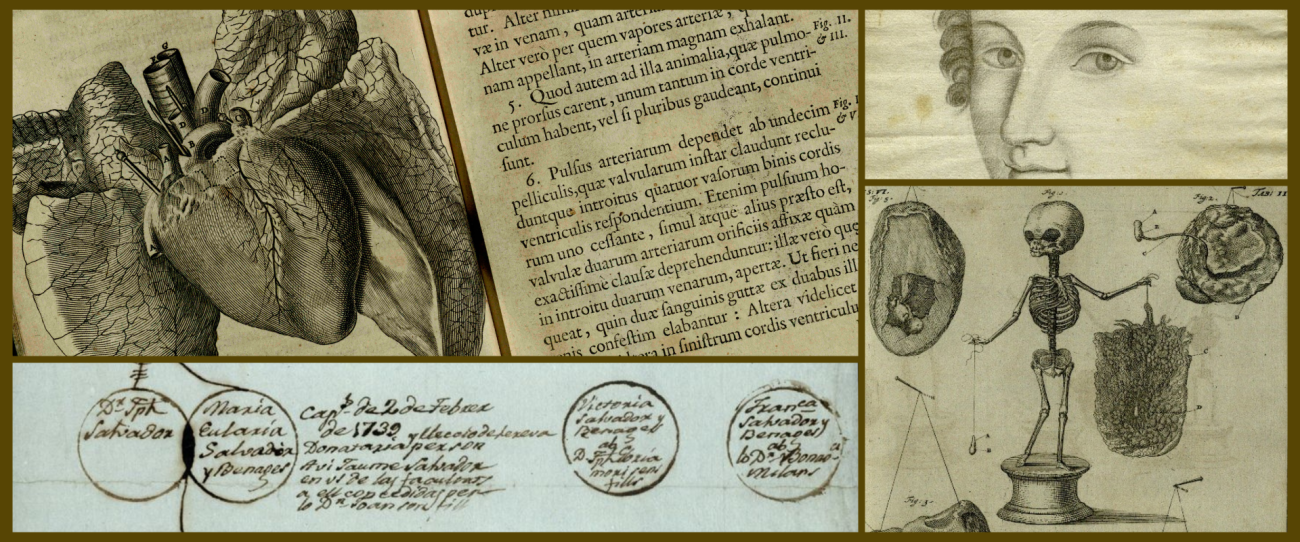 tur. Alter
væ in venam, quam
Alter verò per quem vapores arteriæ,
nam appellant, in arteriam magnam exhalant.
5. Quod autem ad illa animalia, quæ pulmo-
Fig. II.
ne prorſus carent, unum tantum in corde ventri-
& III.
culum habent, vel ſi pluribus gaudeant, continui
ſunt.
6. Pulſus arteriarum dependet ab undecim
Fig. I
pelliculis, quæ valvularum inſtar claudunt reclu-
& V
duntque introitus quatuor vaſorum binis cordis
ventriculis reſpondentium. Etenim pulſuum ho-
rum uno ceſſante, ſimul atque alius præſto eſt,
valvulæ duarum arteriarum orificiis affixæ quàm
exactiſſimè clauſæ deprehenduntur: illæ verò quę
in introitu duarum venarum, apertæ. Ut fieri ne
queat, quin duæ ſanguinis guttæ ex duabus ill
confeſtim elabantur : Altera videlicet
in ſiniſtrum cordis ventriculu
Dr. Jph
Salvador
Maria
Eularia
Salvador
y Benages
de 2 de Febrer
de 1739
Donataria per son
Avi Jaume Salvador
en us de las facultats
a ell concedidas per
lo Dr. Joan son fill
Victoria
Salvador y
Benages
mori sens
fills
Franca
Salvador y
Benages
Milans
Fig. 2.
Fig. 3.